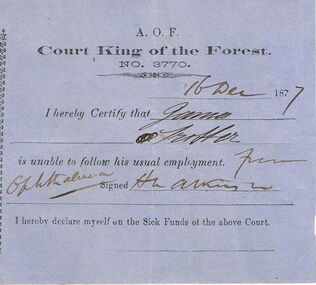 A. O. F.
Court King of the Forest.
NO. 3770.
16 Dec 1877
I hereby Certify that James
is unable to follow his usual employment. from
Ophthalmia Signed
I hereby declare myself on the Sick Funds of the above Court.